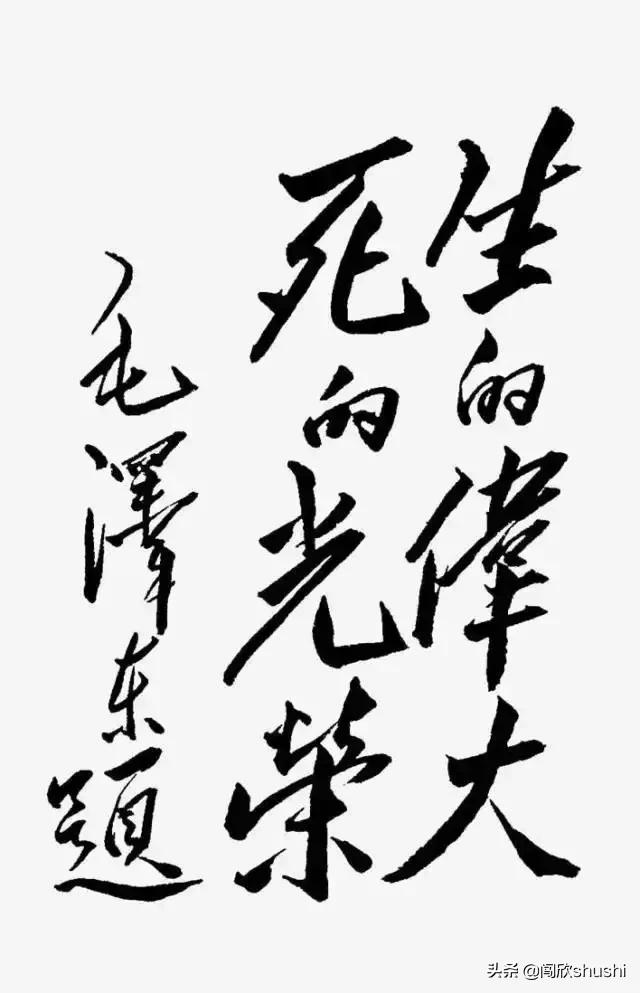 生的偉大
死的光榮
毛澤东題
头条 @闯欣shushi